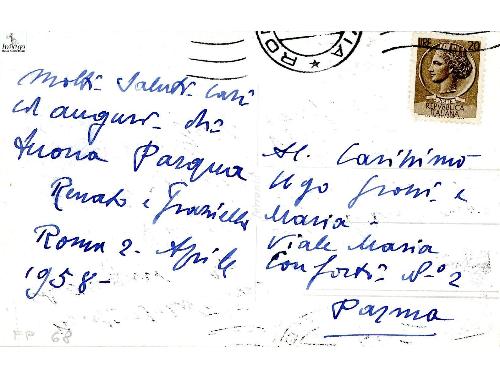 Molti Saluti Cari
ed auguri di
Buona Pasqua
Renato e Graziella
Roma 2. Aprile
1958-
Al Carissimo
Ugo Grossi e
Maria -
Viale Maria
Conforti N° 2
Parma
LIRE 20
REPVBBLICA
ITALIANA
ROMA